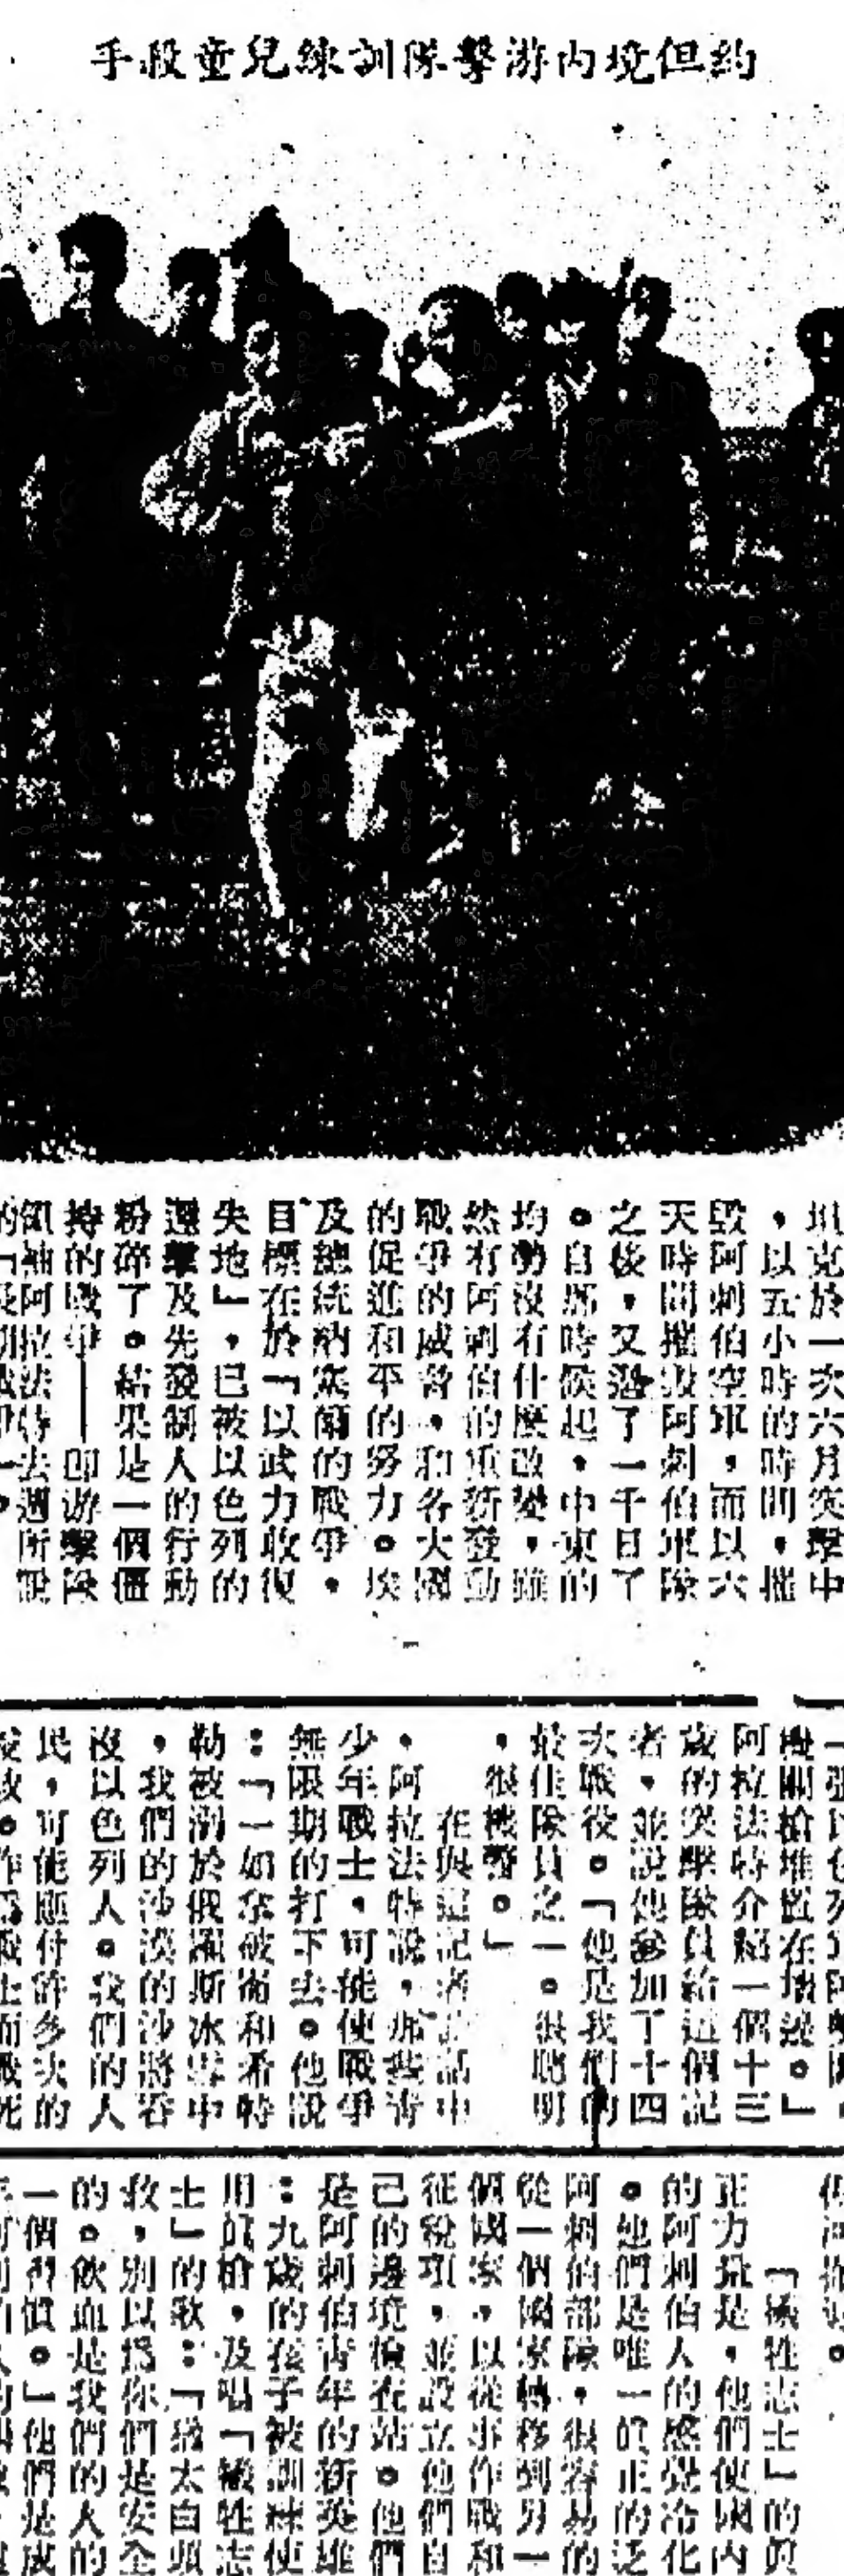 手殺童兒練訓隊擊游內境但約
坦克於一次六月突擊中
，以五小時的時間，摧
毀阿剌伯空軍，而以六
天時間摧毀阿剌伯軍隊
之後，又過了一千日了
。自那時候起，中東的
均勢沒有什麼改變，雖
然有阿剌伯的重新發動
戰爭的威脅，和各大國
的促進和平的努力。埃
及總統納塞爾的戰爭，
目標在於「以武力收復
失地」，已被以色列的
還擊及先發制人的行動
粉碎了。結果是一個僵
持的戰爭——即游擊隊
領袖阿拉法特去週所說
機關槍堆置在墻邊。」
阿拉法特介紹一個十三
歲的突擊隊員給這個記
者，並說他參加了十四
次戰役。「他是我們的
最佳隊員之一。很聰明
，很機警。」
在與這記者談話中
，阿拉法特說，那些青
少年戰士，可能使戰爭
無限期的打下去。他說
：「一如拿破崙和希特
勒被溺於俄羅斯冰雪中
，我們的沙漠的沙將吞
沒以色列人。我們的人
民，可能應付許多次的
「犧牲志士」的真
正力量是，他們使國內
的阿剌伯人的感覺冷化
。他們是唯一的真正的泛
阿剌伯部隊，很容易的
從一個國家轉移到另一
個國家，以從事作戰和
征稅項，並設立他們自
己的邊境檢查站。他們
是阿剌伯青年的新英雄
：九歲的孩子被訓練使
用真槍，及唱「犧牲志
士」的歌：「猶太白頭
救，別以爲你們是安全
的。飲血是我們的人的
一個習慣。」他們是成